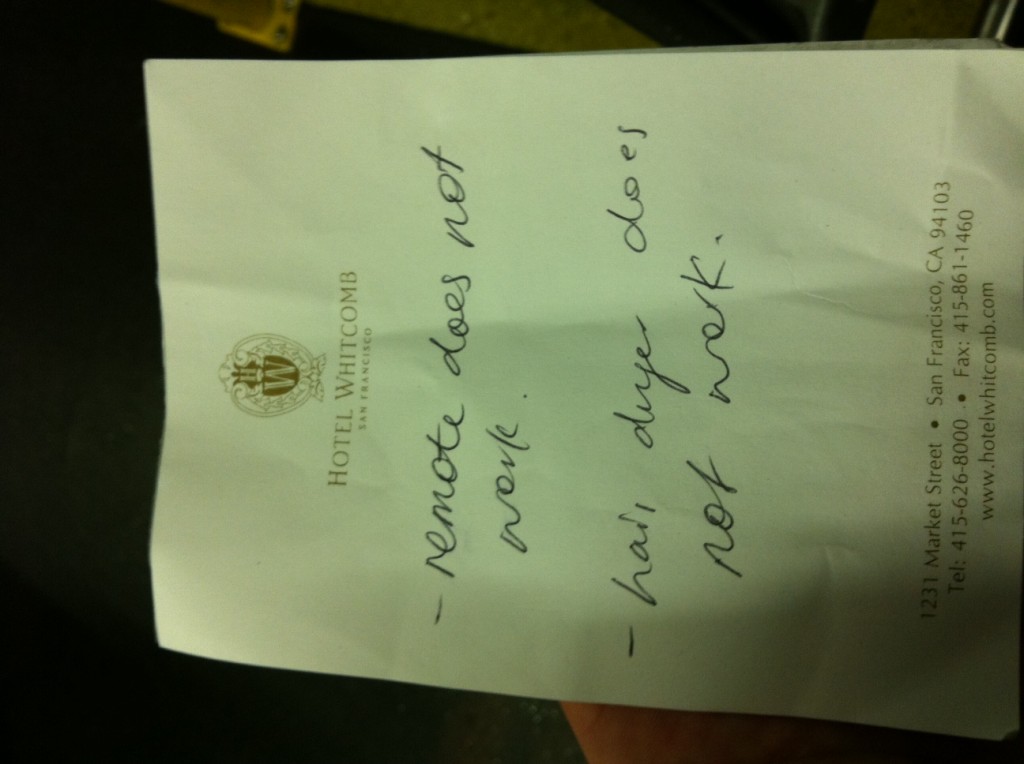 W
HOTEL WHITCOMB
SAN FRANCISCO
- remote does not
work.
- hair dryer does
not work.
1231 Market Street • San Francisco, CA 94103
Tel: 415-626-8000 • Fax: 415-861-1460
www.hotelwhitcomb.com